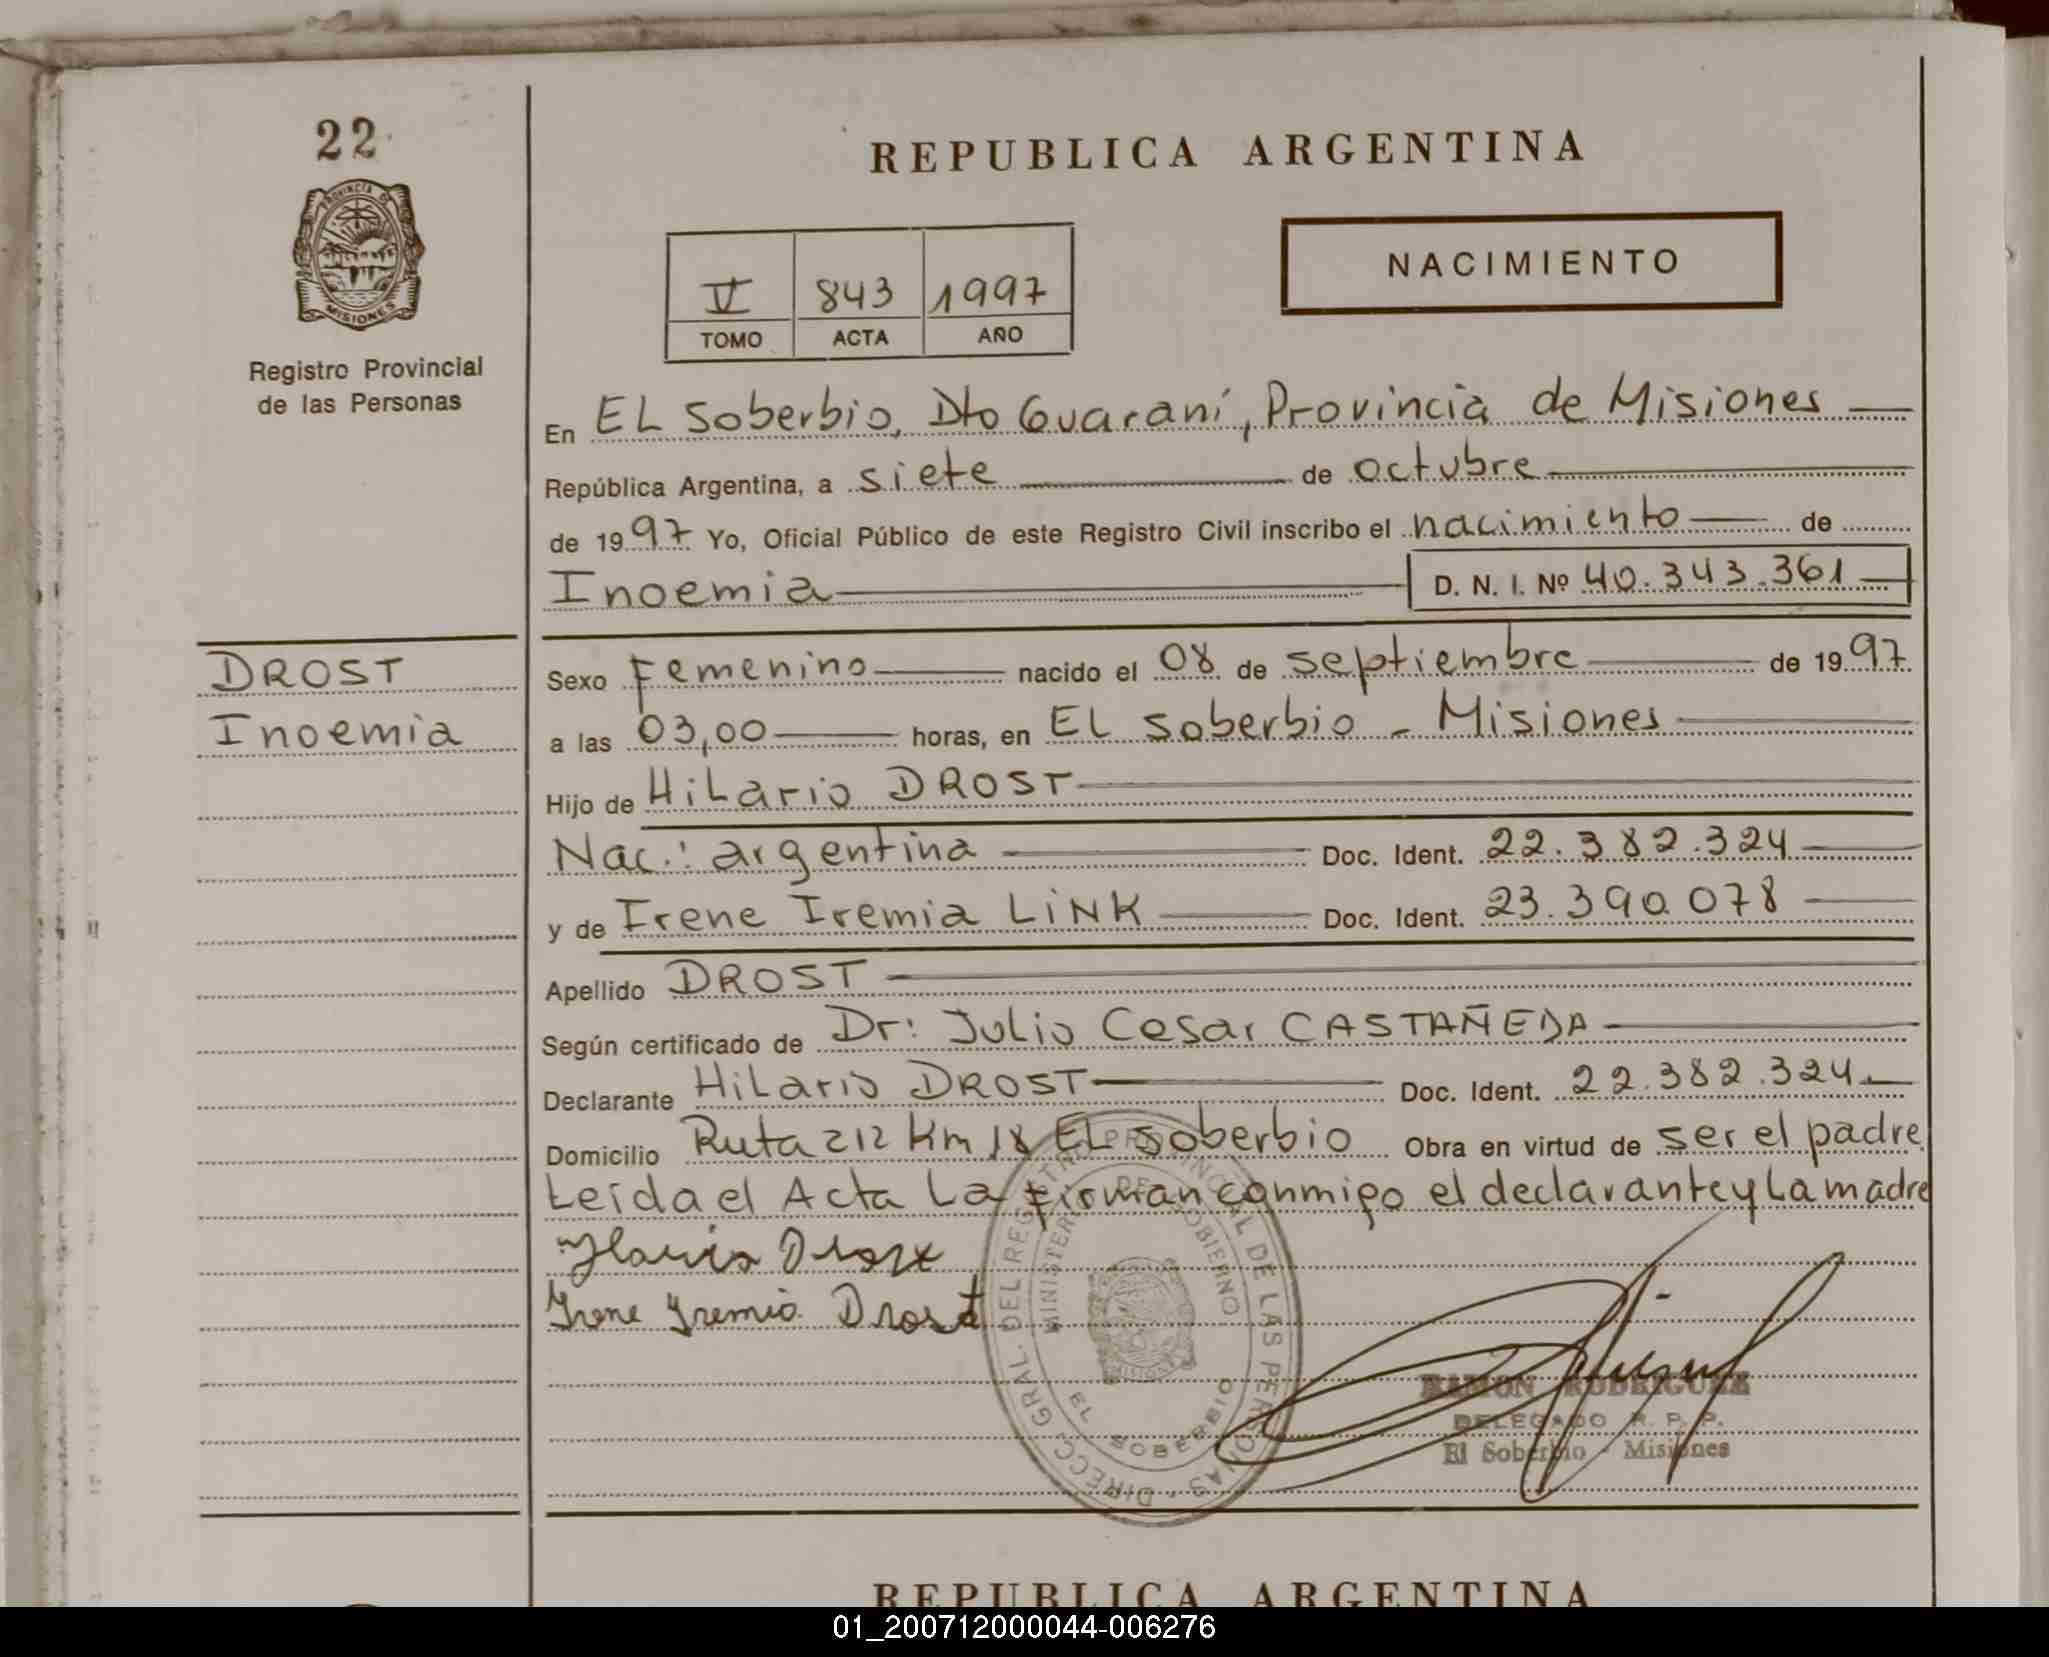 22
PROVINCIA DE
MISIONES
Registro Provincial
de las Personas
REPUBLICA ARGENTINA
V 843 1997
TOMO ACTA AÑO
NACIMIENTO
En EL Soberbio, Dto Guaraní, Provincia de Misiones
República Argentina, a siete de octubre
de 1997 Yo, Oficial Público de este Registro Civil inscribo el nacimiento de
Inoemia D. N. I. Nº 40.343.361
DROST
Inoemia
Sexo Femenino nacido el 08 de septiembre de 1997
a las 03,00 horas, en EL Soberbio - Misiones
Hijo de HiLario DROST
Nac.: argentina Doc. Ident. 22.382.324
y de Irene Iremia LiNK Doc. Ident. 23.390.078
Apellido DROST
Según certificado de Dr: Julio Cesar CASTAÑEDA
Declarante HiLario DROST Doc. Ident. 22.382.324
Domicilio Ruta 212 Km 18 EL Soberbio Obra en virtud de ser el padre
Leída el Acta La firman conmigo el declarante y La madre
Ilario Drost
Irene Iremia Drost
DIRECC. GRAL. DEL REGISTRO PROVINCIAL DE LAS PERSONAS
MINISTERIO DE GOBIERNO
EL SOBERBIO
RAMON RODRIGUEZ
DELEGADO R. P. P.
El Soberbio - Misiones
REPUBLICA ARGENTINA
01_200712000044-006276